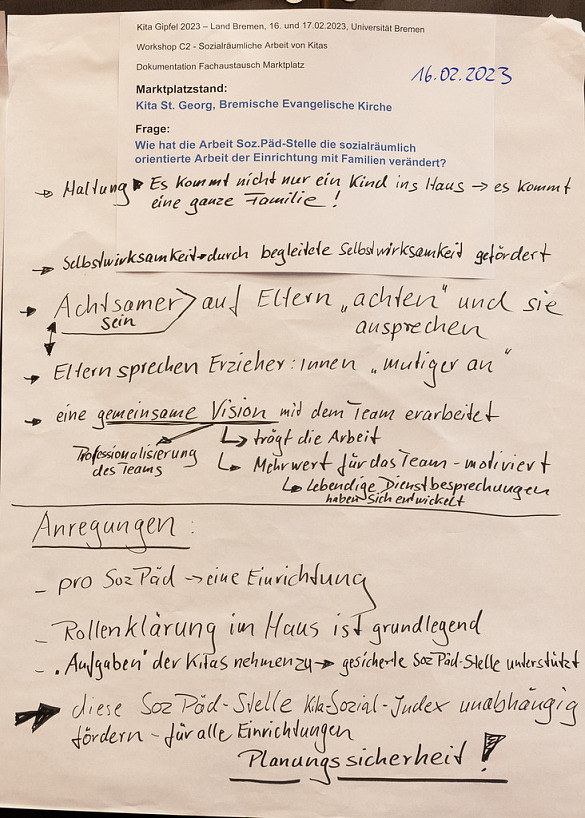 Kita Gipfel 2023 – Land Bremen, 16. und 17.02.2023, Universität Bremen
Workshop C2 - Sozialräumliche Arbeit von Kitas
Dokumentation Fachaustausch Marktplatz
16.02.2023
Marktplatzstand:
Kita St. Georg, Bremische Evangelische Kirche
Frage:
Wie hat die Arbeit Soz.Päd-Stelle die sozialräumlich
orientierte Arbeit der Einrichtung mit Familien verändert?
→ Haltung → Es kommt nicht nur ein Kind ins Haus → es kommt
eine ganze Familie!
→ Selbstwirksamkeit → durch begleitete Selbstwirksamkeit gefördert
→ Achtsamer > auf Eltern „achten" und sie
sein
ansprechen
→ Eltern sprechen Erzieher:innen „mutiger an"
→ eine gemeinsame Vision mit dem Team erarbeitet
Professionalisierung
des Teams
↳ trägt die Arbeit
↳ Mehrwert für das Team - motiviert
↳ Lebendige Dienstbesprechungen
haben sich entwickelt
Anregungen:
- pro SozPäd → eine Einrichtung
- Rollenklärung im Haus ist grundlegend
- „Aufgaben" der Kitas nehmen zu → gesicherte SozPäd-Stelle unterstützt
→ diese SozPäd-Stelle Kita-Sozial-Index unabhängig
fördern - für alle Einrichtungen
Planungssicherheit!